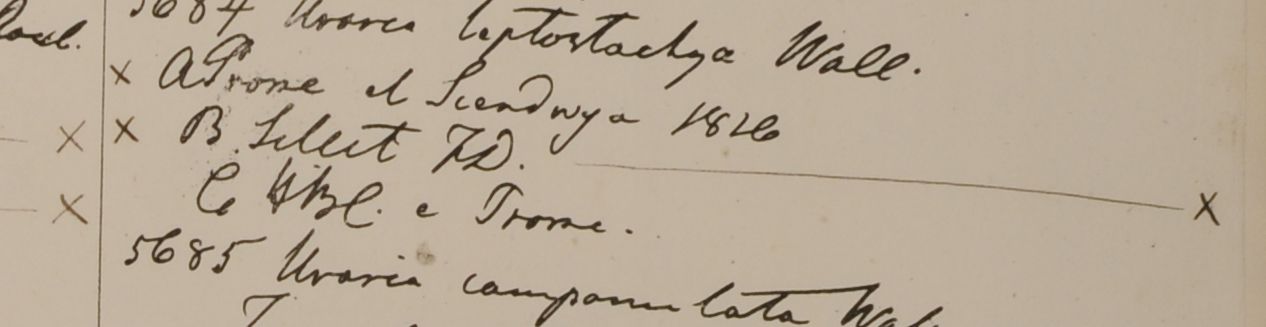 Roxl.
5684 Uraria leptostachya Wall.
x A Prome et Scendwya 1826
x x B. Sillet F.D. x
x C HBC. e Prome.
5685 Uraria campanulata Wall